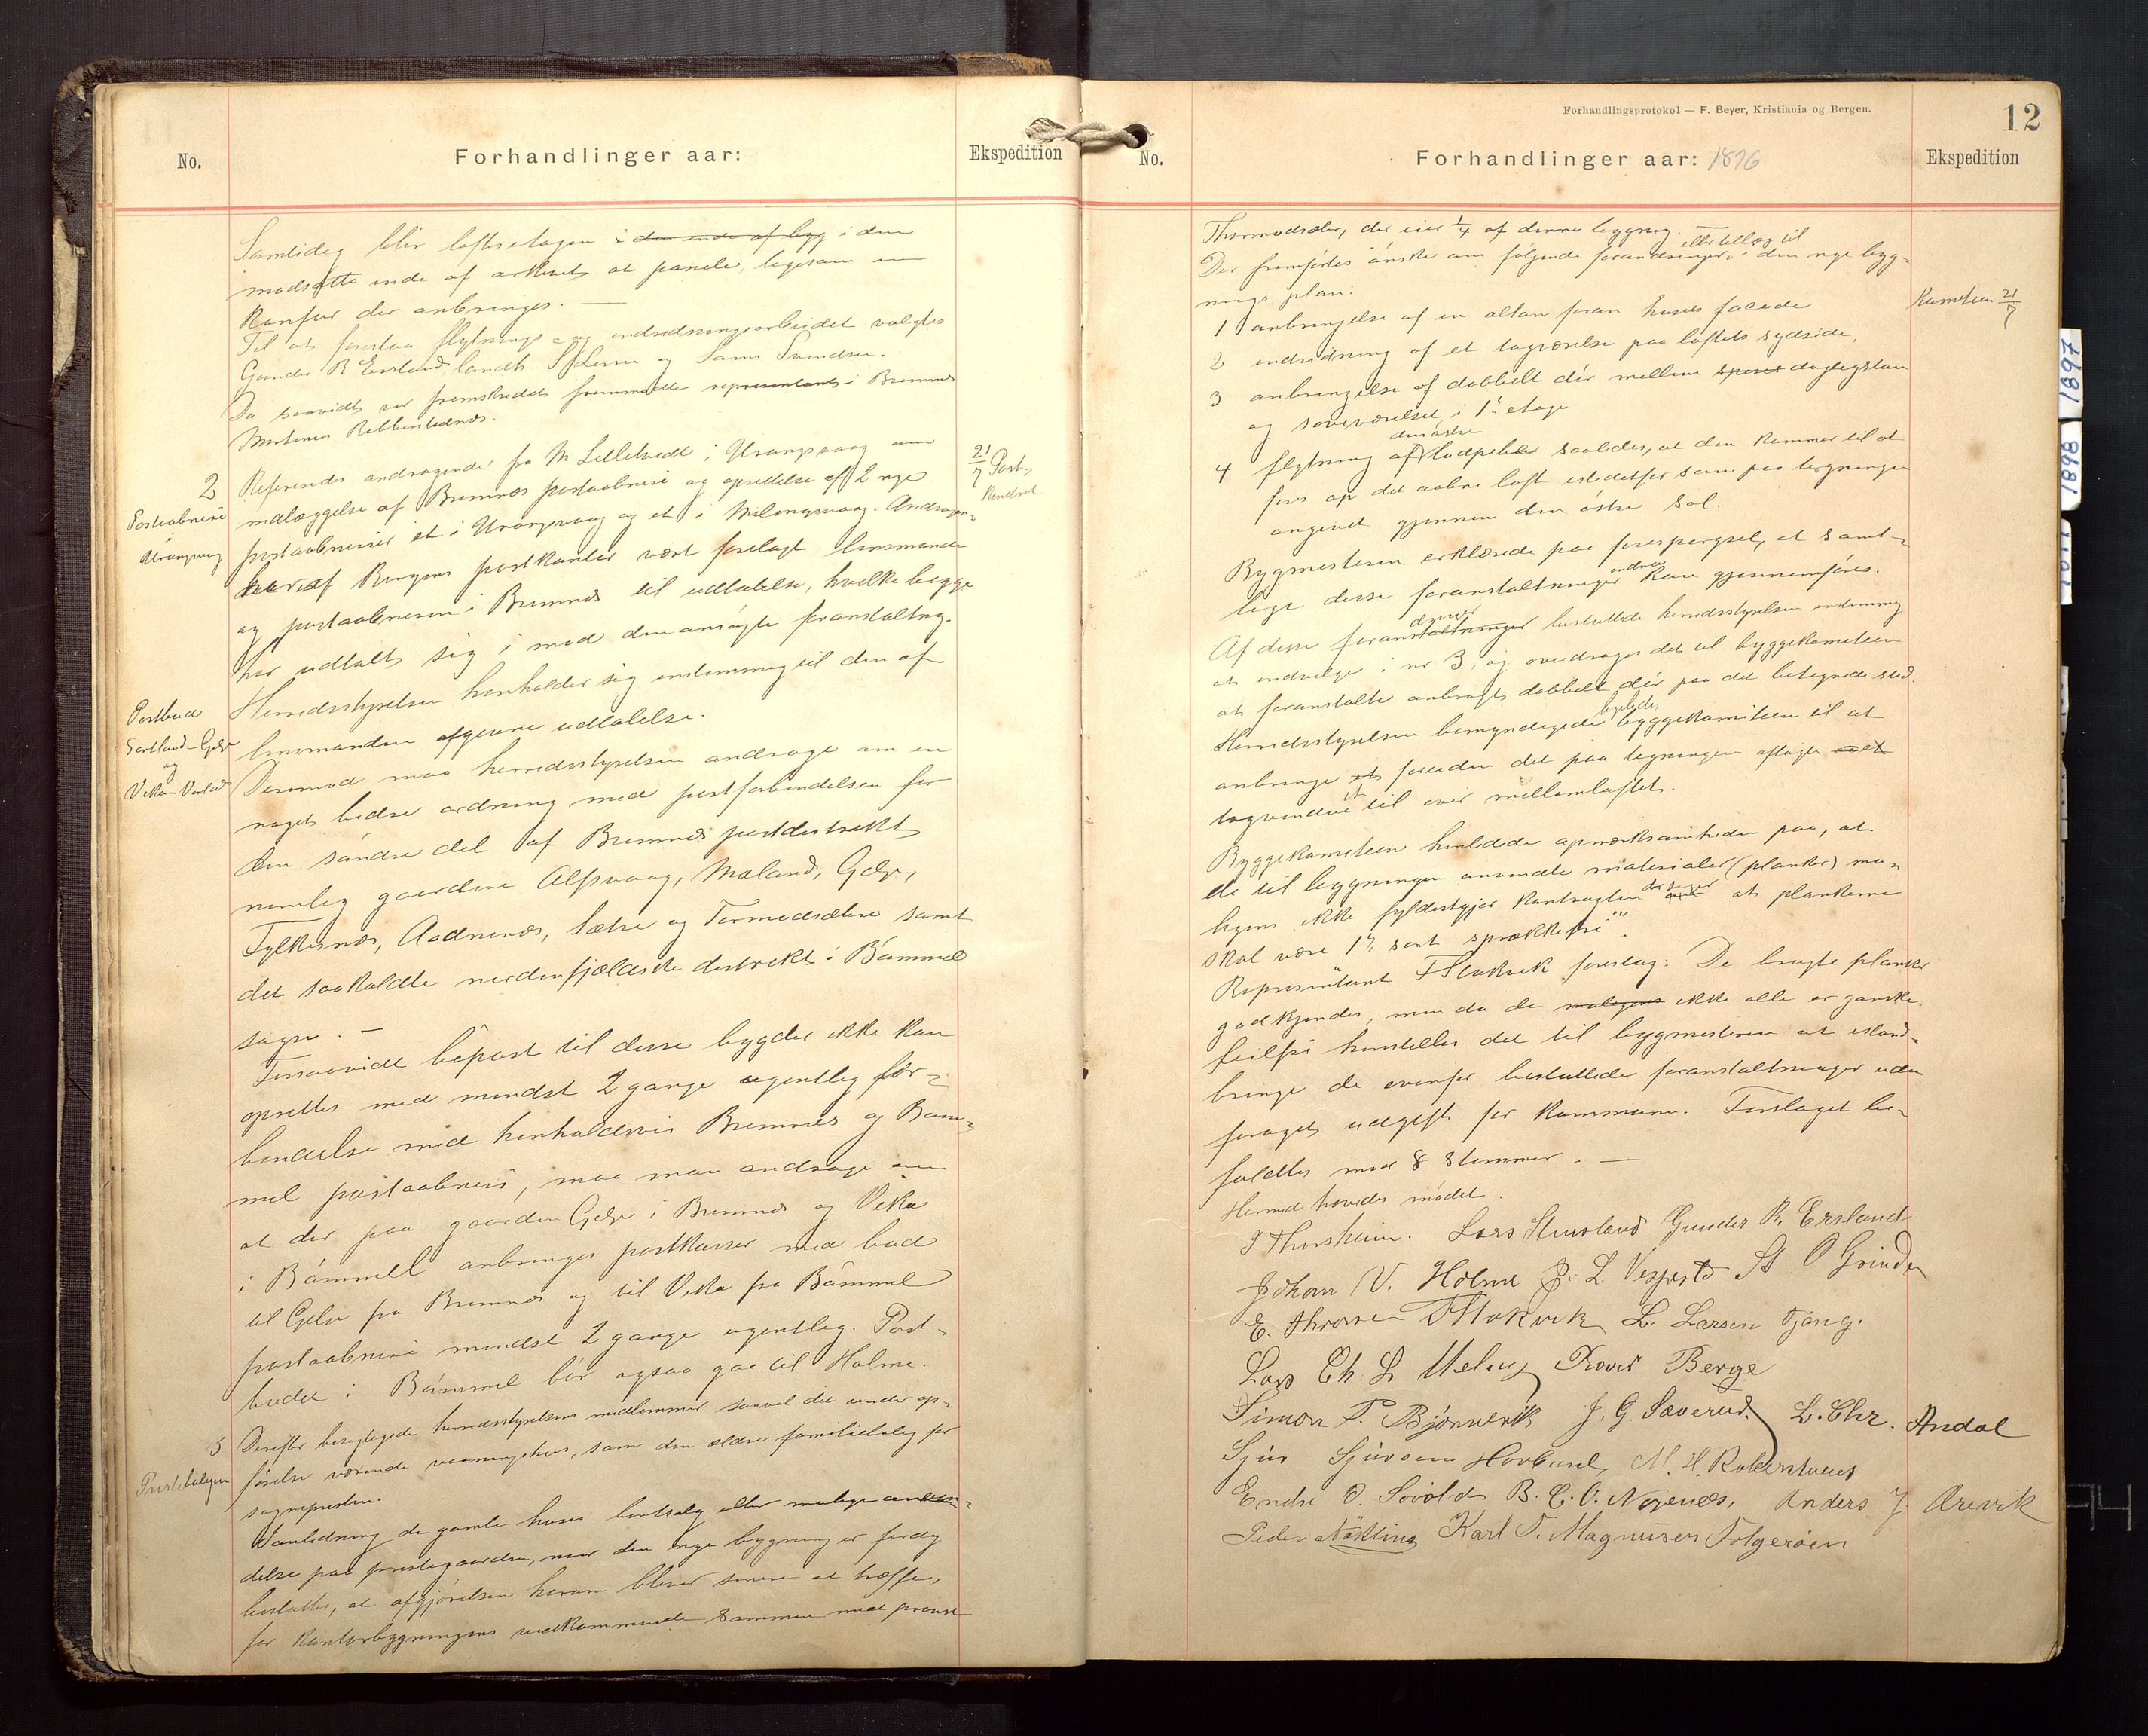 No.
Forhandlinger aar:
Ekspedition
Samtidig blir loftsetagen i den ende af bygg i den
modsatte ende af arkivet at panele, ligesom en
Kanfur der anbringes. —
Til at forestaa flytnings- og indredningsarbeidet valgtes
Gunder R Ersland, landh. og Svendsen.
Da saavidt var fremskredet fremmødte representant i Bremnes
Mortinus
2
Postaabneri
i
Urangsvaag
Refereredes andragende fra M Lilletvedt i Urangsvaag om
indlæggelse af Bremnes postaabneri og oprettelse af 2 nye
postaabnerier et i Urangsvaag og et i Melingsvaag. Andragen-
har af Bergens postkontor vært forelagt lensmanden
og postaabneren i Bremnes til udtalelse, hvilke begge
har udtalt sig i mod den ansøgte foranstaltng.
21/7 Post-
Kontoret
Herredsstyrelsen henholder sig enstemmig til den af
lensmanden afgivne udtalelse.
Postbud
Gjelse
og
Vika
Derimod maa herredsstyrelsen andrage om en
noget bedre ordning med postforbindelsen for
den søndre del af Bremnes postdistrikt
nemlig gaardene Alfsvaag, Mæland, Gjelse,
Fylkesnæs, Aadnenæs, Sætre og Tormodsæther samt
det saakaldte nordenfjældske distrikt i Bømmel
sogn. —
Forsaavidt bipost til disse bygder ikke kan
oprettes med mindst 2 gange ugentlig for-
bindelse med henholdsvis Bremnes og Bøm-
mel postaabneri, maa man andrage om
at der paa gaarden Gjelse i Bremnes og Vika
i Bømmel anbringes postkasser med bud
til Gjelse fra Bremnes og til Vika fra Bømmel
postaabneri mindst 2 gange ugentlig. Post-
budet i Bømmel bør ogsaa gaa til Holme.
3
Prestebolegen
Derefter besigtigede herredsstyrelsens medlemmer saavel det under op-
førelse værende vaaningshus, som den ældre familiebolig for
sognepresten.
I anledning de gamle huses bortsalg eller mulige anven-
delse paa prestegaarden, naar den nye bygning er færdig
besluttes, at afgjørelsen herom bliver senere at træffe,
for kontorbygningens vedkommende sammen med provst
Forhandlingsprotokol — F. Beyer, Kristiania og Bergen.
12
No.
Forhandlinger aar: 1896
Ekspedition
Thormodsæter, der eier 1/4 af denne bygning.
eller tillæg til
Der fremførtes ønske om følgende forandringer i den nye byg-
nings plan:
Komiteen 21/7
1 anbringelse af en altan foran husets facade
2 indredning af et tagværelse paa loftets sydside,
3 anbringelse af dobbelt dør mellem spise daglegstuen
og soveværelset i 1ste etage
den østre
4 flytning af saaledes, at den kommer til at
føres op det aabne loft istedetfor som paa tegningen
angivet gjennem den østre sal.
Bygmesteren erklærede paa forespørgsel, at samt-
endnu
lige disse foranstaltninger kan gjennemføres.
Af disse foranstaltninger besluttede herredsstyrelsen enstemmig
at indvilge i nr 3, og overdroges det til byggekomiteen
at foranstalte anbragt dobbelt dør paa det betegnede sted.
ligeledes
Herredsstyrelsen bemyndigede byggekomiteen til at
anbringe foruden det paa tegningen aflagte
tagvindue et til over mellemloftet.
Byggekomiteen henledede opmærksomheden paa, at
de til bygningen anvendte materialer (planker) mu-
ligens ikke fyldestgjør kontrakten der siger at plankerne
skal være "1ste sort sprækkefri".
Representant T Stokvik foreslog: De brugte planker
godkjendes, men da de muligens ikke alle er ganske
feilfri henstilles det til bygmesteren at istand-
bringe de ovenfor besluttede foranstaltninger uden
forøget udgift for kommunen. Forslaget bi-
faldtes med 8 stemmer. —
Hermed hævedes mødet.
J Thorsheim. Lars Gunder R. Ersland
Johan V. Holme J. L. Vespestd St O Grinde
E. T Stokvik L. Larsen Tjong.
Lars Ch L Meling Thovis Berge
Simon T. Bjørnevik J. G. Sæverud. L. Chr. Andal
Sjur Sjursen Hovland, M. H.
Endre O. Sørvold B. C. O. Nøgenæs, Anders J Ørevik
Peder Nøkling Karl T. Magnusen Folgerøen
1897
1898